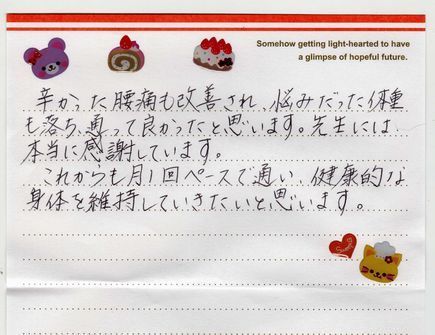 Somehow getting light-hearted to have
a glimpse of hopeful future.
辛かった腰痛も改善され、悩みだった体重
も落ち、通って良かったと思います。先生には、
本当に感謝しています。
これからも月1回ペースで通い、健康的な
身体を維持していきたいと思います。